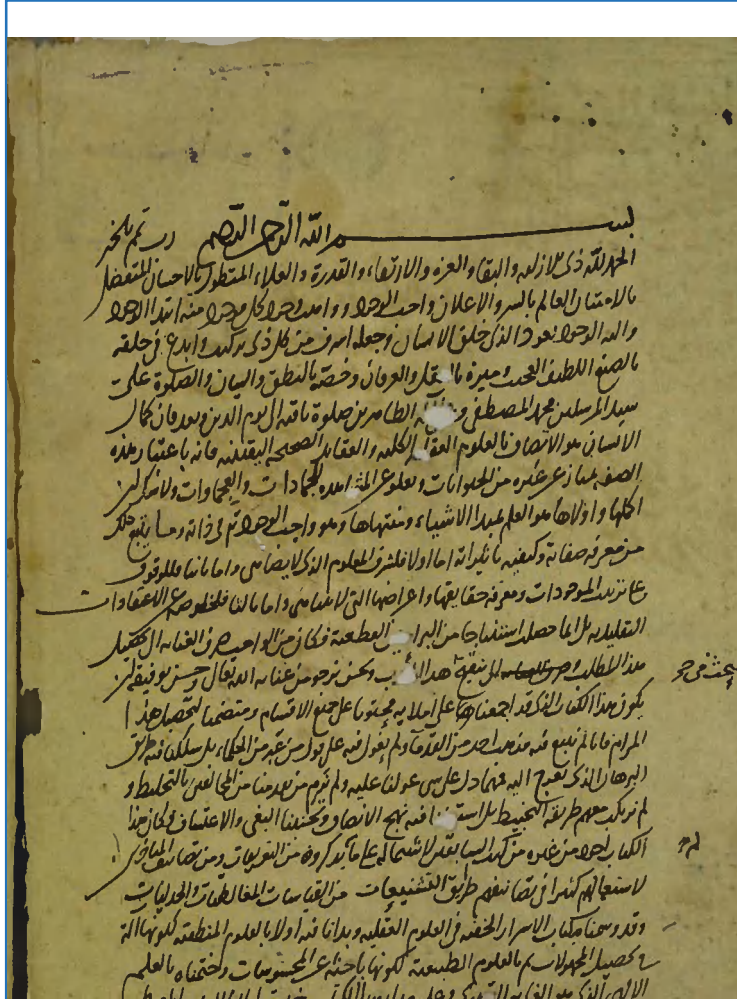 بسم الله الرحمن الرحيم رب تمم بالخير
الحمد لله ذي الازلية والبقاء والعزة والارتقاء والقدرة والعلاء المتطول بالاحسان المتفضل
بالامتنان العالم بالسر والاعلان واجب الوجود وواهب وجود كل موجود منه ابتدا الوجود
واليه الوجود يعود الذي خلق الانسان وجعله اشرف من كل ذي تركيب وابدع في خلقه
بالصنع اللطيف العجيب وميزه بالعقل والعرفان وخصه بالنطق والبيان والصلوة على
سيد المرسلين محمد المصطفى الطاهرين صلوة باقية الى يوم الدين وبعد فان كمال
الانسان هو الاتصاف بالعلوم الكلية والعقايد الصحيحة اليقينية فانه باعتبار هذه
الصفة يمتاز عن غيره من الحيوانات ويعلو عن المشابهة للجمادات والعجماوات ولا شك ان
اكملها واولاها هو العلم بمبدا الاشياء ومنتهاها وهو واجب الوجود تم في ذاته وما يتبع ذلك
من معرفة صفاته وكيفية تاثيراته اما اولا فلشرف المعلوم الذي لا يضاهى واما ثانيا فللوقوف
على ترتيب الموجودات ومعرفة حقايقها واعراضها التي لا تتناهى واما ثالثا فلخلوصه عن الاعتقادات
التقليدية بل انما حصلت استنتاجا من البراهين القطعية فكان من الواجب صرف العناية الى تحصيل
هذا المطلب هذا ونحن نرجو من عناية الله تعالى وحسن توفيقه ان
يكون هذا الكتاب الذي قد اجمعنا على املايه محتويا على جميع الاقسام ومتضمنا لتحصيل هذا
المرام فانا لم نتبع فيه مذهب احد من القدماء ولم نعول فيه على قول من غبر من الحكماء بل سلكنا فيه طريق
البرهان الذي نعرج اليه فمهما دل على شيء عولنا عليه ولم نرم من بعدمنا من المخالفين بالتخليط و
لم نرتكب معهم طريقة التخبيط بل فيه نهج الانصاف وتجنبنا البغي والاعتساف وكان هذا
الكتاب اجود من غيره من كتب السابقين لاشتماله على ما يذكرونه من التفريعات ومن تصانيف
لاستعمالهم كثيرا في تصانيفهم طريق التشنيعات من القياسات المغالطيات والجدليات
وقد وسمناه بكتاب الاسرار الخفية في العلوم العقلية وبدانا فيه اولا بالعلوم المنطقية لكونها آلة
في تحصيل ثم بالعلوم الطبيعية لكونها باحثة عن المحسوسات وختمناه بالعلم
الالهي الذي هو